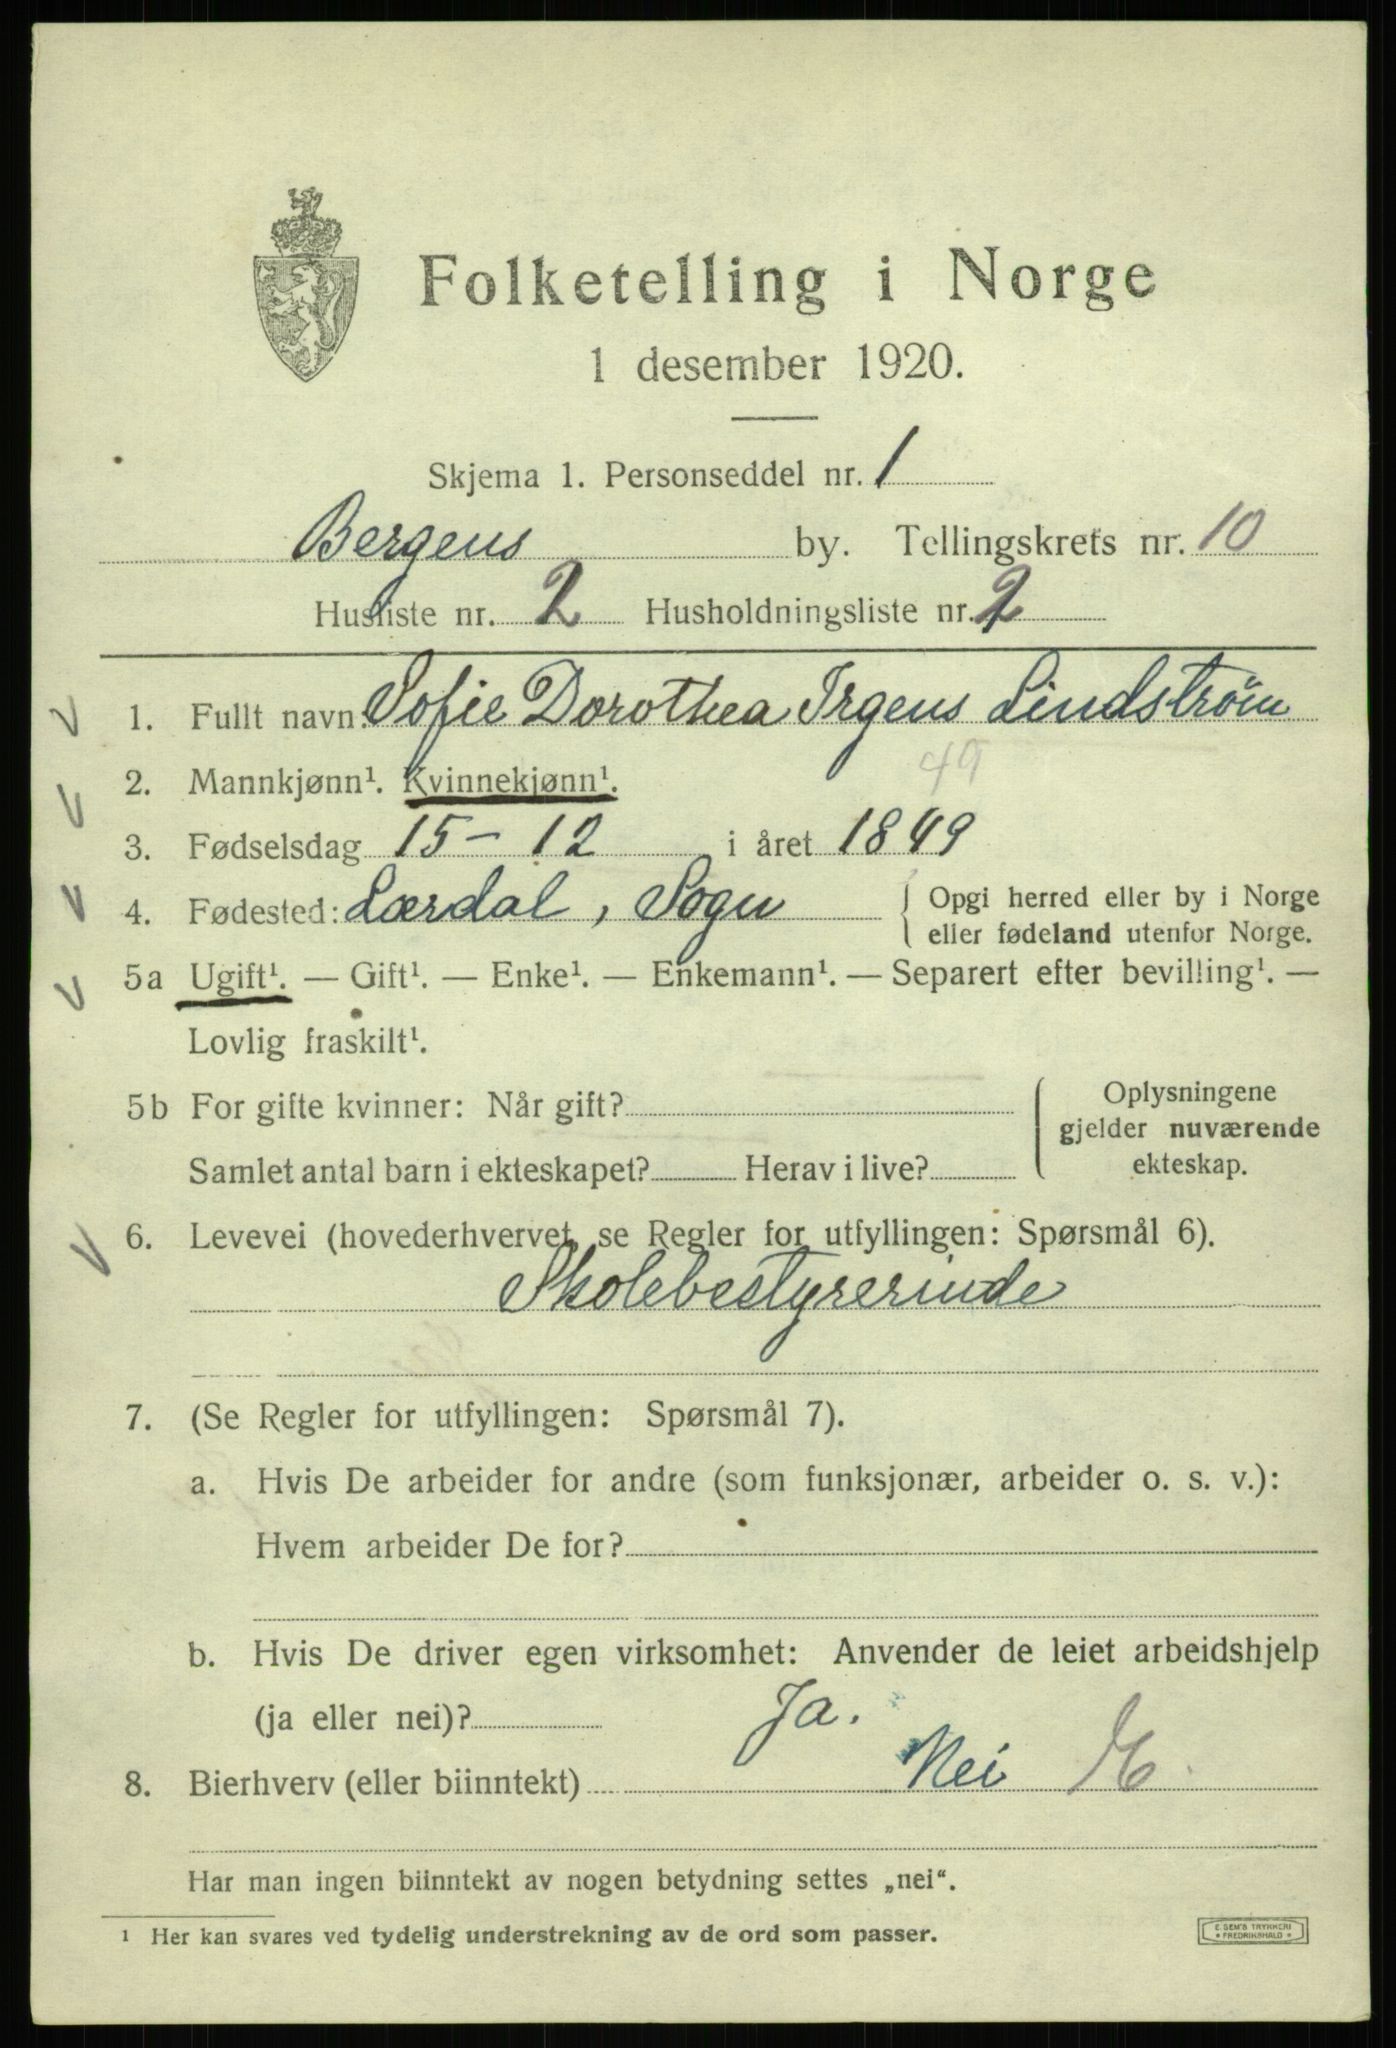 Folketelling i Norge
1 desember 1920.
Skjema 1. Personseddel nr. 1
Bergens by. Tellingskrets nr. 10
Husliste nr. 2 Husholdningsliste nr. 2
1. Fullt navn: Sofie Dorothea Irgens Lindstrøm
2. Mannkjønn¹. Kvinnekjønn¹. 49
3. Fødselsdag 15 - 12 i året 1849
4. Fødested: Lærdal, Sogn { Opgi herred eller by i Norge
eller fødeland utenfor Norge.
5a Ugift¹. — Gift¹. — Enke¹. — Enkemann¹. — Separert efter bevilling¹. —
Lovlig fraskilt¹.
5b For gifte kvinner: Når gift? { Oplysningene
gjelder nuværende
Samlet antal barn i ekteskapet? Herav i live? ekteskap.
6. Levevei (hovederhvervet, se Regler for utfyllingen: Spørsmål 6).
Skolebestyrerinde
7. (Se Regler for utfyllingen: Spørsmål 7).
a. Hvis De arbeider for andre (som funksjonær, arbeider o. s. v.):
Hvem arbeider De for?
b. Hvis De driver egen virksomhet: Anvender de leiet arbeidshjelp
(ja eller nei)? Ja.
8. Bierhverv (eller biinntekt) Nei E.
Har man ingen biinntekt av nogen betydning settes „nei“.
¹ Her kan svares ved tydelig understrekning av de ord som passer.
E. SEM'S TRYKKERI
• FREDRIKSHALD •